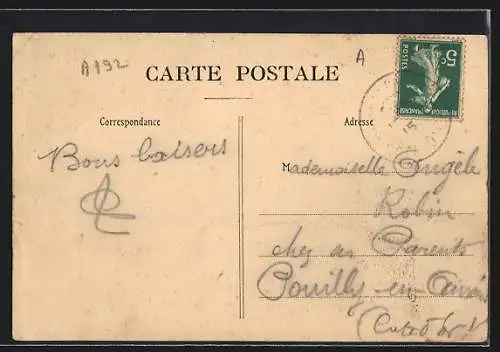 A192
A
CARTE POSTALE
Correspondance
Adresse
5c
POSTES
Bons baisers
Mademoiselle Angèle
Robin
chez ses Parents
Pouilly-en-Auxois
Cote d'or